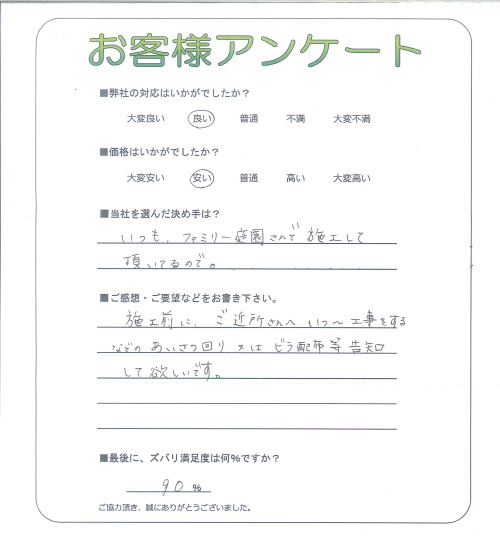 お客様アンケート
■弊社の対応はいかがでしたか？
大変良い 良い 普通 不満 大変不満
■価格はいかがでしたか？
大変安い 安い 普通 高い 大変高い
■当社を選んだ決め手は？
いつも、ファミリー庭園さんで施工して
頂いてるので。
■ご感想・ご要望などをお書き下さい。
施工前に、ご近所さんへ いつ〜工事をする
などの あいさつ回り 又は ビラ配布等告知
して欲しいです。
■最後に、ズバリ満足度は何%ですか？
90 %
ご協力頂き、誠にありがとうございました。